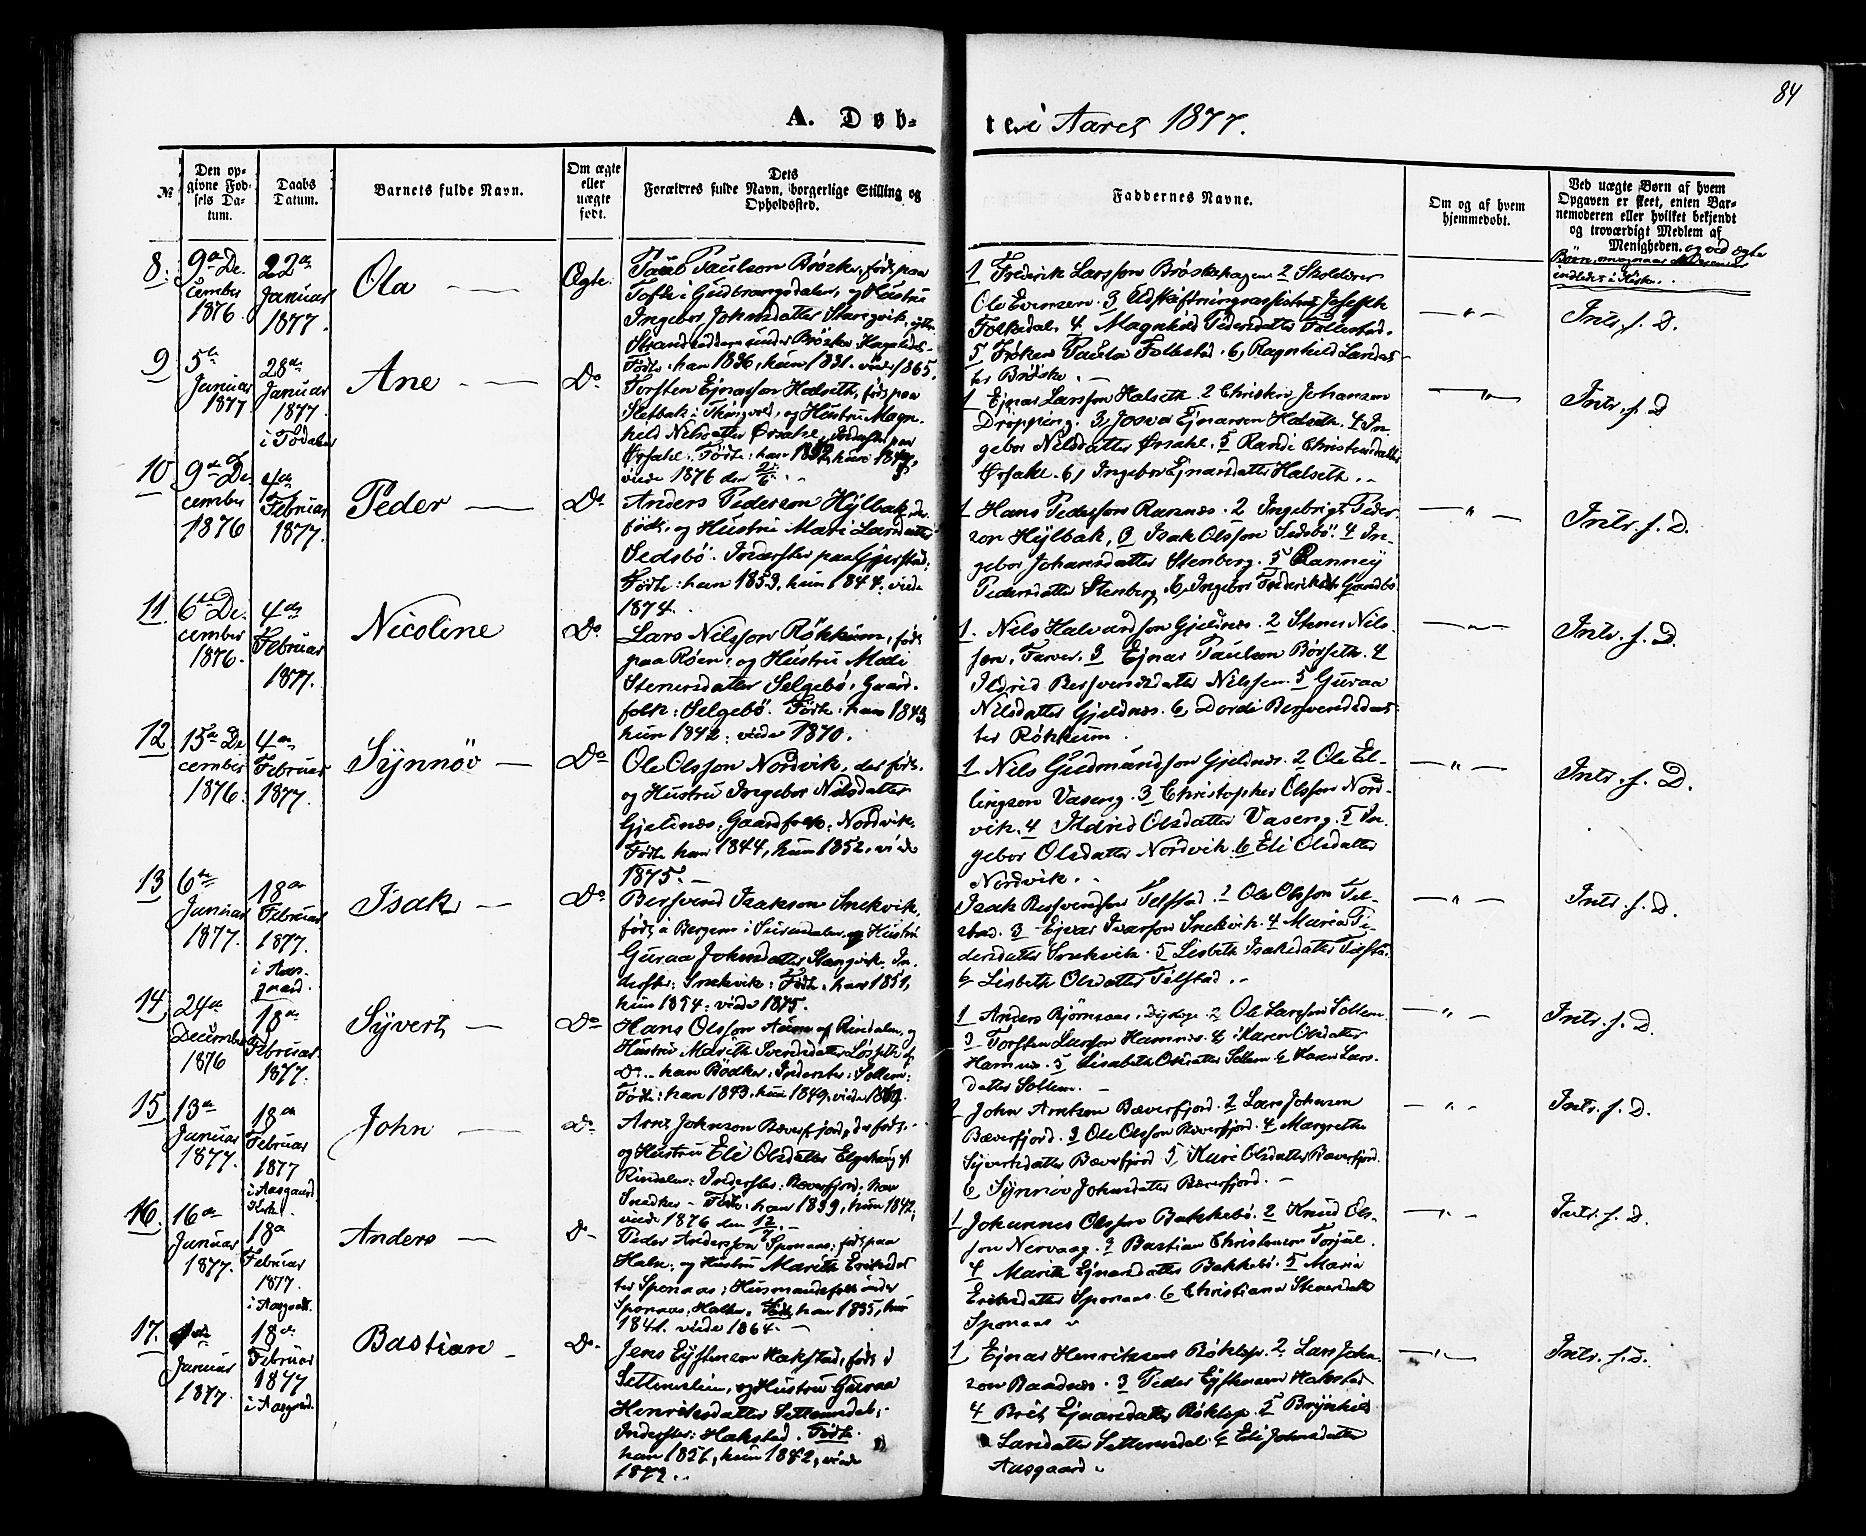 84
A. Døb-
te i Aaret 1877.
№
Den op-
givne Fød-
sels Da-
tum.
Daabs
Datum.
Barnets fulde Navn.
Om ægte
eller
uægte
født.
Dets
Forældres fulde Navn, borgerlige Stilling og
Opholdssted.
Faddernes Navne.
Om og af hvem
hjemmedøbt.
Ved uægte Børn af hvem
Opgaven er skeet, enten Bar-
nemoderen eller hvilket bekjendt
og troværdigt Medlem af
Menigheden. og ved ægte
8.
9de De-
cember
1876.
22de
Januar
1877.
Ola
Ægte.
Paul Paulson Brøske, født paa
Tofte i Gudbrangsdalen, og Hustru
Ingebor Johnsdatter Stangvik,
Født: han 1836, hun 1831. viede 1865.
1 Frederik Larsson Brøskehagen 2 Skolelærer
Ole Evensen. 3 Udskiftningsassistent Joseph
Folkedal. 4 Magnhild Pedersdatter Follestad.
5 Frøken Paula Follestad. 6, Ragnhild Larsdat-
ter Brøske.
Intr. f. D.
9
5te
Januar
1877
28de
Januar
1877.
i Tødalen
Ane
Do
Torsten Ejnarson Halseth, født paa
Sletbak i Thingvold, og Hustru Magn-
hild Nilsdatter Ørsahl,
viede 1876 den
1 Ejnar Larsson Halseth. 2 Christen Johansen
Drøpping. 3, Josva Ejnarson Halseth. 4 In-
gebor Nilsdatter Ørsahl. 5 Randi Christensdatter
Ørsahl. 6, Ingebor Ejnarsdatter Halseth.
Intr. f. D
10
9de De
cember
1876
4de
Februar
1877.
Peder
Do
Anders Pederson Hylbak, der
født, og Hustru Mari Larsdatter
Sedsbö. Inderster paa Gjerstad;
Født: han 1853, hun 1844. viede
1874.
1 Hans Pederson Rannæs. 2 Ingebrigt Peder-
son Hylbak, 3 Isak Olsson Sedsbö. 4 In-
gebor Johansdatter Stenberg. 5 Ranney
Pedersdatter Stenberg. 6, Ingebor
Intr. f. D.
11.
6te De-
cember
1876.
4de
Februar
1877.
Nicoline
Do
Lars Nilsson Røkkum, født
paa Røen, og Hustru Madi
Stenersdatter Selgebø. Gaard-
folk: Selgebø. Født: han 1843,
hun 1842. viede 1870.
1. Nils Halvardson Gjeldnæs. 2 Stener Nils-
sen, Farver. 3 Ejnar Paulsen Børseth. 4
Ildrid Bersvendsdatter Nilssen. 5 Guraa
Nilsdatter Gjeldnæs. 6, Dordi Bersvendsdat-
ter Røkkum.
Intr. f. D.
12
15de De
cember
1876.
4de
Februar
1877.
Synnöv
Do
Ole Olsson Nordvik, der født,
og Hustru Ingebor Nilsdatter
Gjeldnæs. Gaardfolk: Nordvik.
Født han 1844, hun 1852, viede
1875.
1 Nils Gudmundson Gjeldnæs. 2 Ole El-
lingson Vaseng. 3 Christopher Olsson Nord-
vik. 4 Ildrid Olsdatter Vaseng. 5 In-
gebor Olsdatter Nordvik. 6 Eli Olsdatter
Nordvik.
Intr. f. D.
13
6te
Januar
1877.
18de
Februar
1877.
i Aas-
gaard.
Isak
Do
Bersvend Isakson Snekvik,
født a Bergem i Surendalen og Hustru
Guraa Johnsdatter Stangvik. In-
derster: Snekvik: Født: han 1851,
hun 1854. viede 1875.
Isak Bersvendson Telstad. 2 Ole Olsson Tel-
stad. 3 Ejvar Ivarson Snekvik. 4 Marit Pe-
dersdatter Snekvik. 5 Lisbeth Isaksdatter
6 Lisbeth Olsdatter Telstad.
Intr. f. D.
14
24de
December
1876
18de
Februar
1877.
Syvert
Do
Hans Olsson Aune af Rindalen, og
Hustru Marith Sivertsdatter Løseth af
Do. han Bødker. Inderster: Sollem:
Født: han 1843. hun 1849. viede
1 Anders Bjørnaas, 2 Ole Larsson Sollem.
3 Torsten Larsson Hamnes. 4, Karen Olsdatter
Hamnes. 5 Elisabeth Olsdatter Sollem. 6 Karen Lars-
datter Sollem.
Intr. f. D.
15
13de
Januar
1877.
18de
Februar
1877
i Aasgaard
Kirke.
John
Do
Arnt Johnson Bæverfjord, der født,
og Hustru Eli Olsdatter Elgshaug af
Rindalen. Inderster: Bæverfjord. han
Snedker. Født: han 1839, hun 1842,
viede 1876 den
1 John Arntson Bæverfjord. 2 Lars Johnson
Bæverfjord. 3 Ole Olsson Bæverfjord. 4 Margrethe
Syvertsdatter Bæverfjord 5 Kari Olsdatter Bæverfjord.
6 Synnöv Johnsdatter Bæverfjord.
Intr. f. D.
16.
16de
Januar
1877.
18de
Februar
1877.
i Aasgaard.
Anders
Do
Peder Anderson Sponaas, født paa
Halse, og Hustru Marith Eriksdat
ter Sponaas; Husmandsfolk under
Sponaas; Halse. Født, han 1835, hun
1841. viede 1864.
1 Johannes Olsson Bakkebø. 2 Knud Ols-
son Nervaag. 3 Bastian Christensen Torjul.
4 Marith Ejnarsdatter Bakkebø. 5 Marie
Eriksdatter Sponaas. 6 Christiana Stenersdatter
Sponaas
Intr. f. D.
17.
Januar
1877.
18de
Februar
1877
i Aasgaard.
Bastian
Do.
Jens Eystenson Hakstad, født i
Settemsdal, og Hustru Guraa
Henriksdatter Settemsdal;
Inderster: Hakstad. Født:
han 1851, hun 1852, viede
1 Ejnar Henrikson Røklep. 2. Lars John-
son Baadnæs. 3 Peder Eystenson Hakstad
4 Brit Ejnarsdatter Røklep. 5 Brynhild
Larsdatter Settemsdal 6 Eli Johnsdatter
Aasgaard.
Intr. f. D.